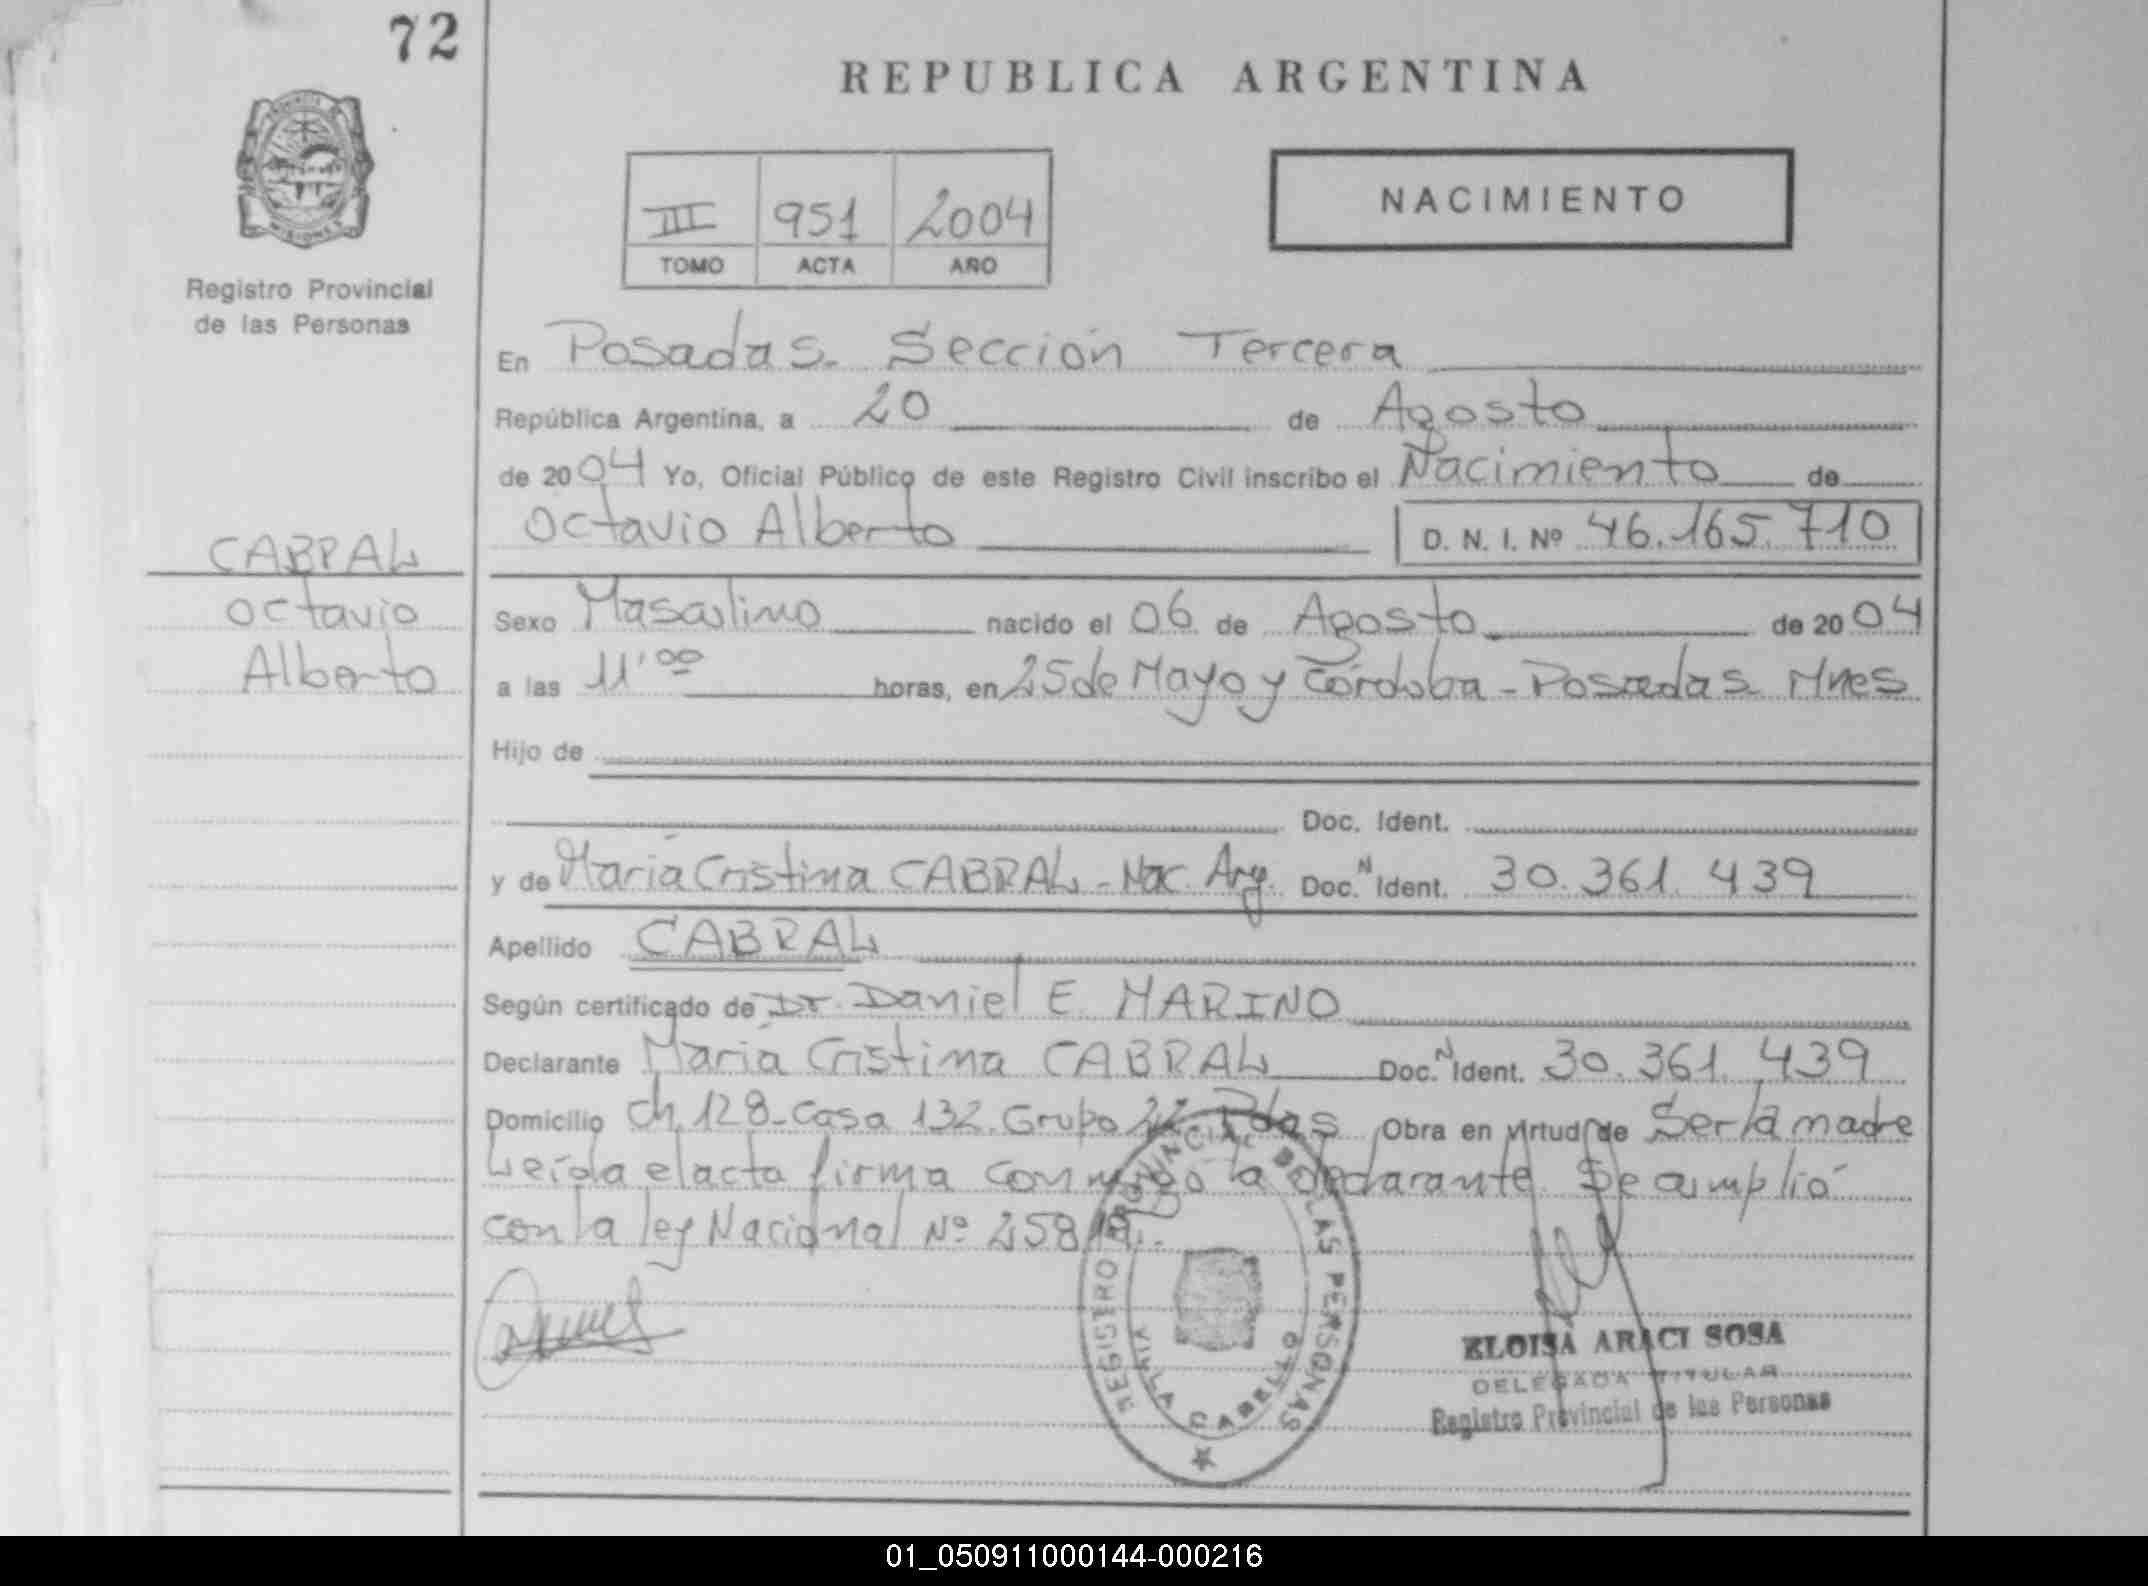 72
REPUBLICA ARGENTINA
PROVINCIA DE
MISIONES
Registro Provincial
de las Personas
III 951 2004
TOMO ACTA AÑO
NACIMIENTO
En Posadas. Sección Tercera
República Argentina, a 20 de Agosto
de 2004 Yo, Oficial Público de este Registro Civil inscribo el Nacimiento de
Octavio Alberto D. N. I. Nº 46.165.710
CABRAL
Octavio
Alberto
Sexo Masculino nacido el 06 de Agosto de 2004
a las 11'00 horas, en 25 de Mayo y Córdoba - Posadas Mnes
Hijo de
Doc. Ident.
y de María Cristina CABRAL - Nac. Arg. Doc. N Ident. 30.361.439
Apellido CABRAL
Según certificado de Dr. Daniel E. MARINO
Declarante María Cristina CABRAL Doc. N Ident. 30.361.439
Domicilio Ch. 128 - Casa 132. Grupo 22 Pdas Obra en virtud de Ser la madre
Leída el acta firma conmigo la declarante. Se cumplió
con la ley Nacional Nº 25819.
REGISTRO PROVINCIAL DE LAS PERSONAS
VILLA CABELLO
ELOISA ARACI SOSA
DELEGADA TITULAR
Registro Provincial de las Personas
01_050911000144-000216